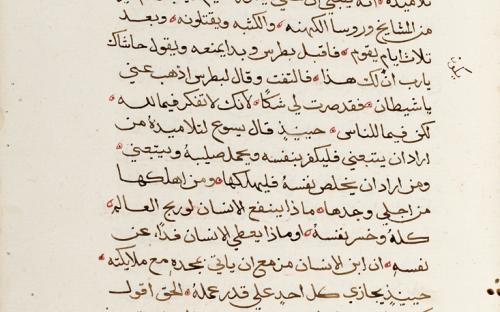 من المشايخ وروسا الكهنه والكتبه ويقتلونه وبعد
ثلاث ايام يقوم فاقبل بطرس وبدا يمنعه ويقول حاشاك
يارب ان لك هذا فالتفت وقال لبطرس اذهب عني
ياشيطان فقد صرت لي شكا لانك لا تفكر فيما لله
لكن فيما للناس حينيذ قال يسوع لتلاميذه من
اراد ان يتبعني فليكفر بنفسه ويحمل صليبه ويتبعني
ومن اراد ان يخلص نفسه فليهلكها ومن اهلكها
من اجلي وجدها ماذا ينتفع الانسان لو ربح العالم
كله وخسر نفسه او ماذا يعطي الانسان فداء عن
نفسه ان ابن الانسان مزمع ان ياتي بمجده مع ملايكته
حينيذ يجازي كل احد علي قدر عمله الحق اقول